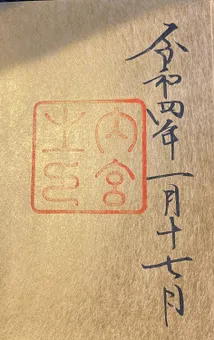 令和四年一月十七日
内宮之印